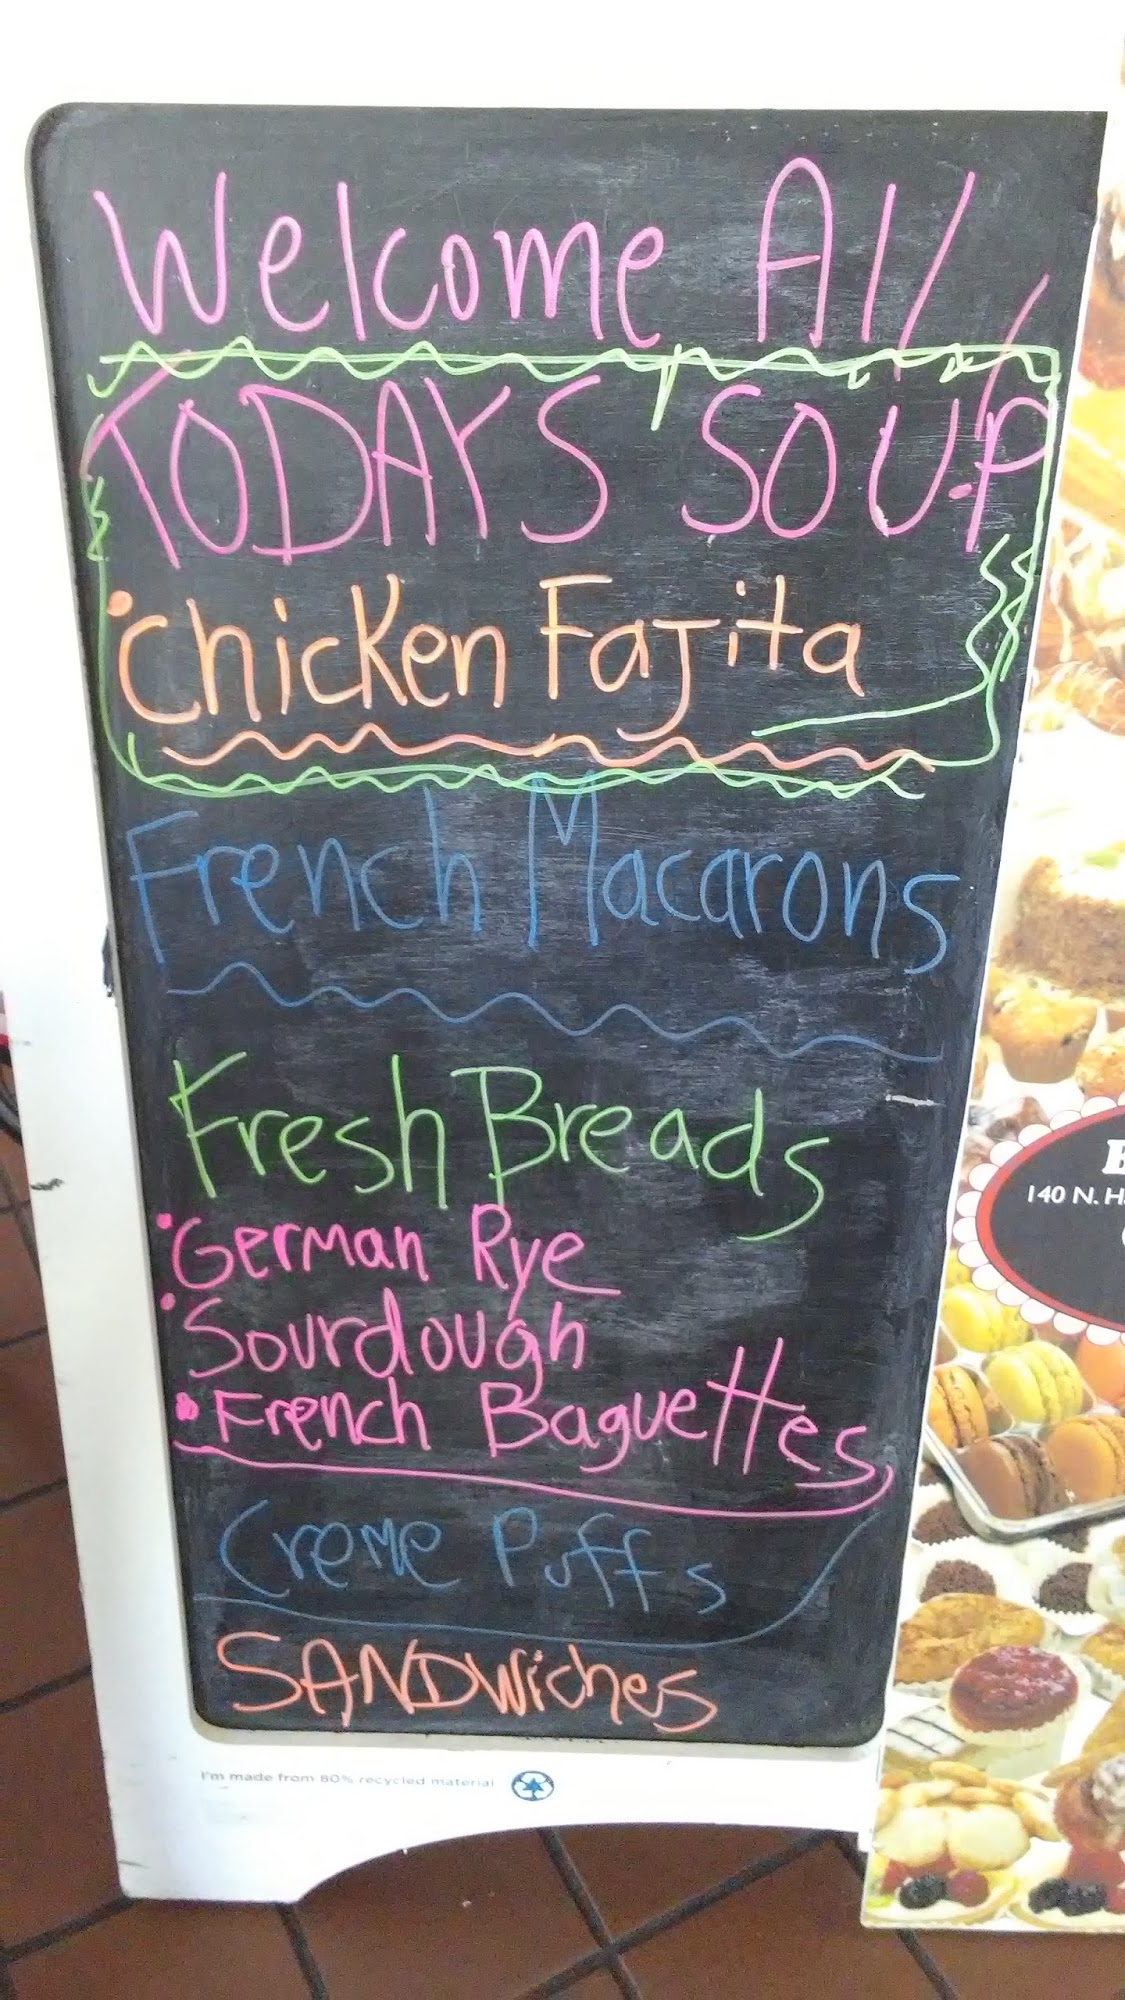 Welcome All
TODAYS SOUP
• Chicken Fajita
French Macarons
Fresh Breads
• German Rye
• Sourdough
• French Baguettes
Creme Puffs
SANDWiches
I'm made from 80% recycled material
140 N. H